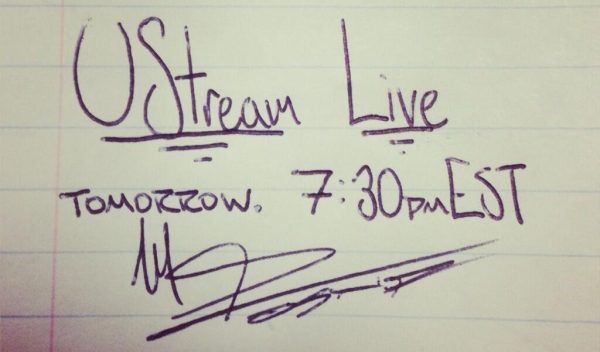 UStream Live
TOMORROW. 7:30pm EST